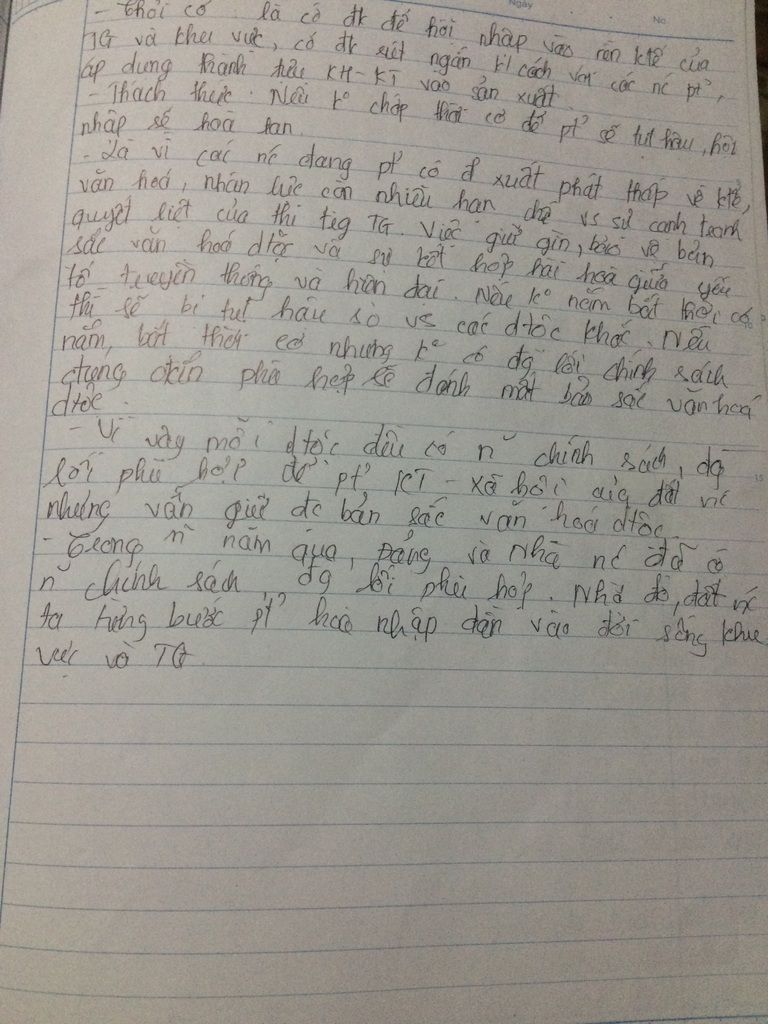 Ngày
No
- Thời cơ : là có đk để hội nhập vào nền ktế của
TG và khu vực, có đk rút ngắn k/cách với các nc ptº,
áp dụng thành tựu KH-KT vào sản xuất.
- Thách thức : Nếu kº chớp thời cơ để ptº sẽ tụt hậu, hội
nhập sẽ hoà tan.
- Là vì các nc đang ptº có đ xuất phát thấp về ktế,
văn hoá, nhân lực còn nhiều hạn chế vs sự cạnh tranh
quyết liệt của thị tợg TG. Việc giữ gìn, bảo vệ bản
sắc văn hoá dtộc và sự kết hợp hài hoà giữa yếu
tố truyền thống và hiện đại. Nếu kº nắm bắt thời cơ
thì sẽ bị tụt hậu so vs các dtộc khác. Nếu
nắm, bắt thời cơ nhưng kº có đg lối chính sách
đúng đắn phù hợp sẽ đánh mất bản sắc văn hoá
dtộc.
- Vì vậy mỗi dtộc đều có n~ chính sách, đg
lối phù hợp để ptº KT - xã hội của đất nc
nhưng vẫn giữ đc bản sắc văn hoá dtộc.
- Trong n~ năm qua, Đảng và Nhà nc đã có
n~ chính sách, đg lối phù hợp. Nhờ đó, đất nc
ta từng bước ptº hoà nhập dần vào đời sống khu
vực và TG.
15